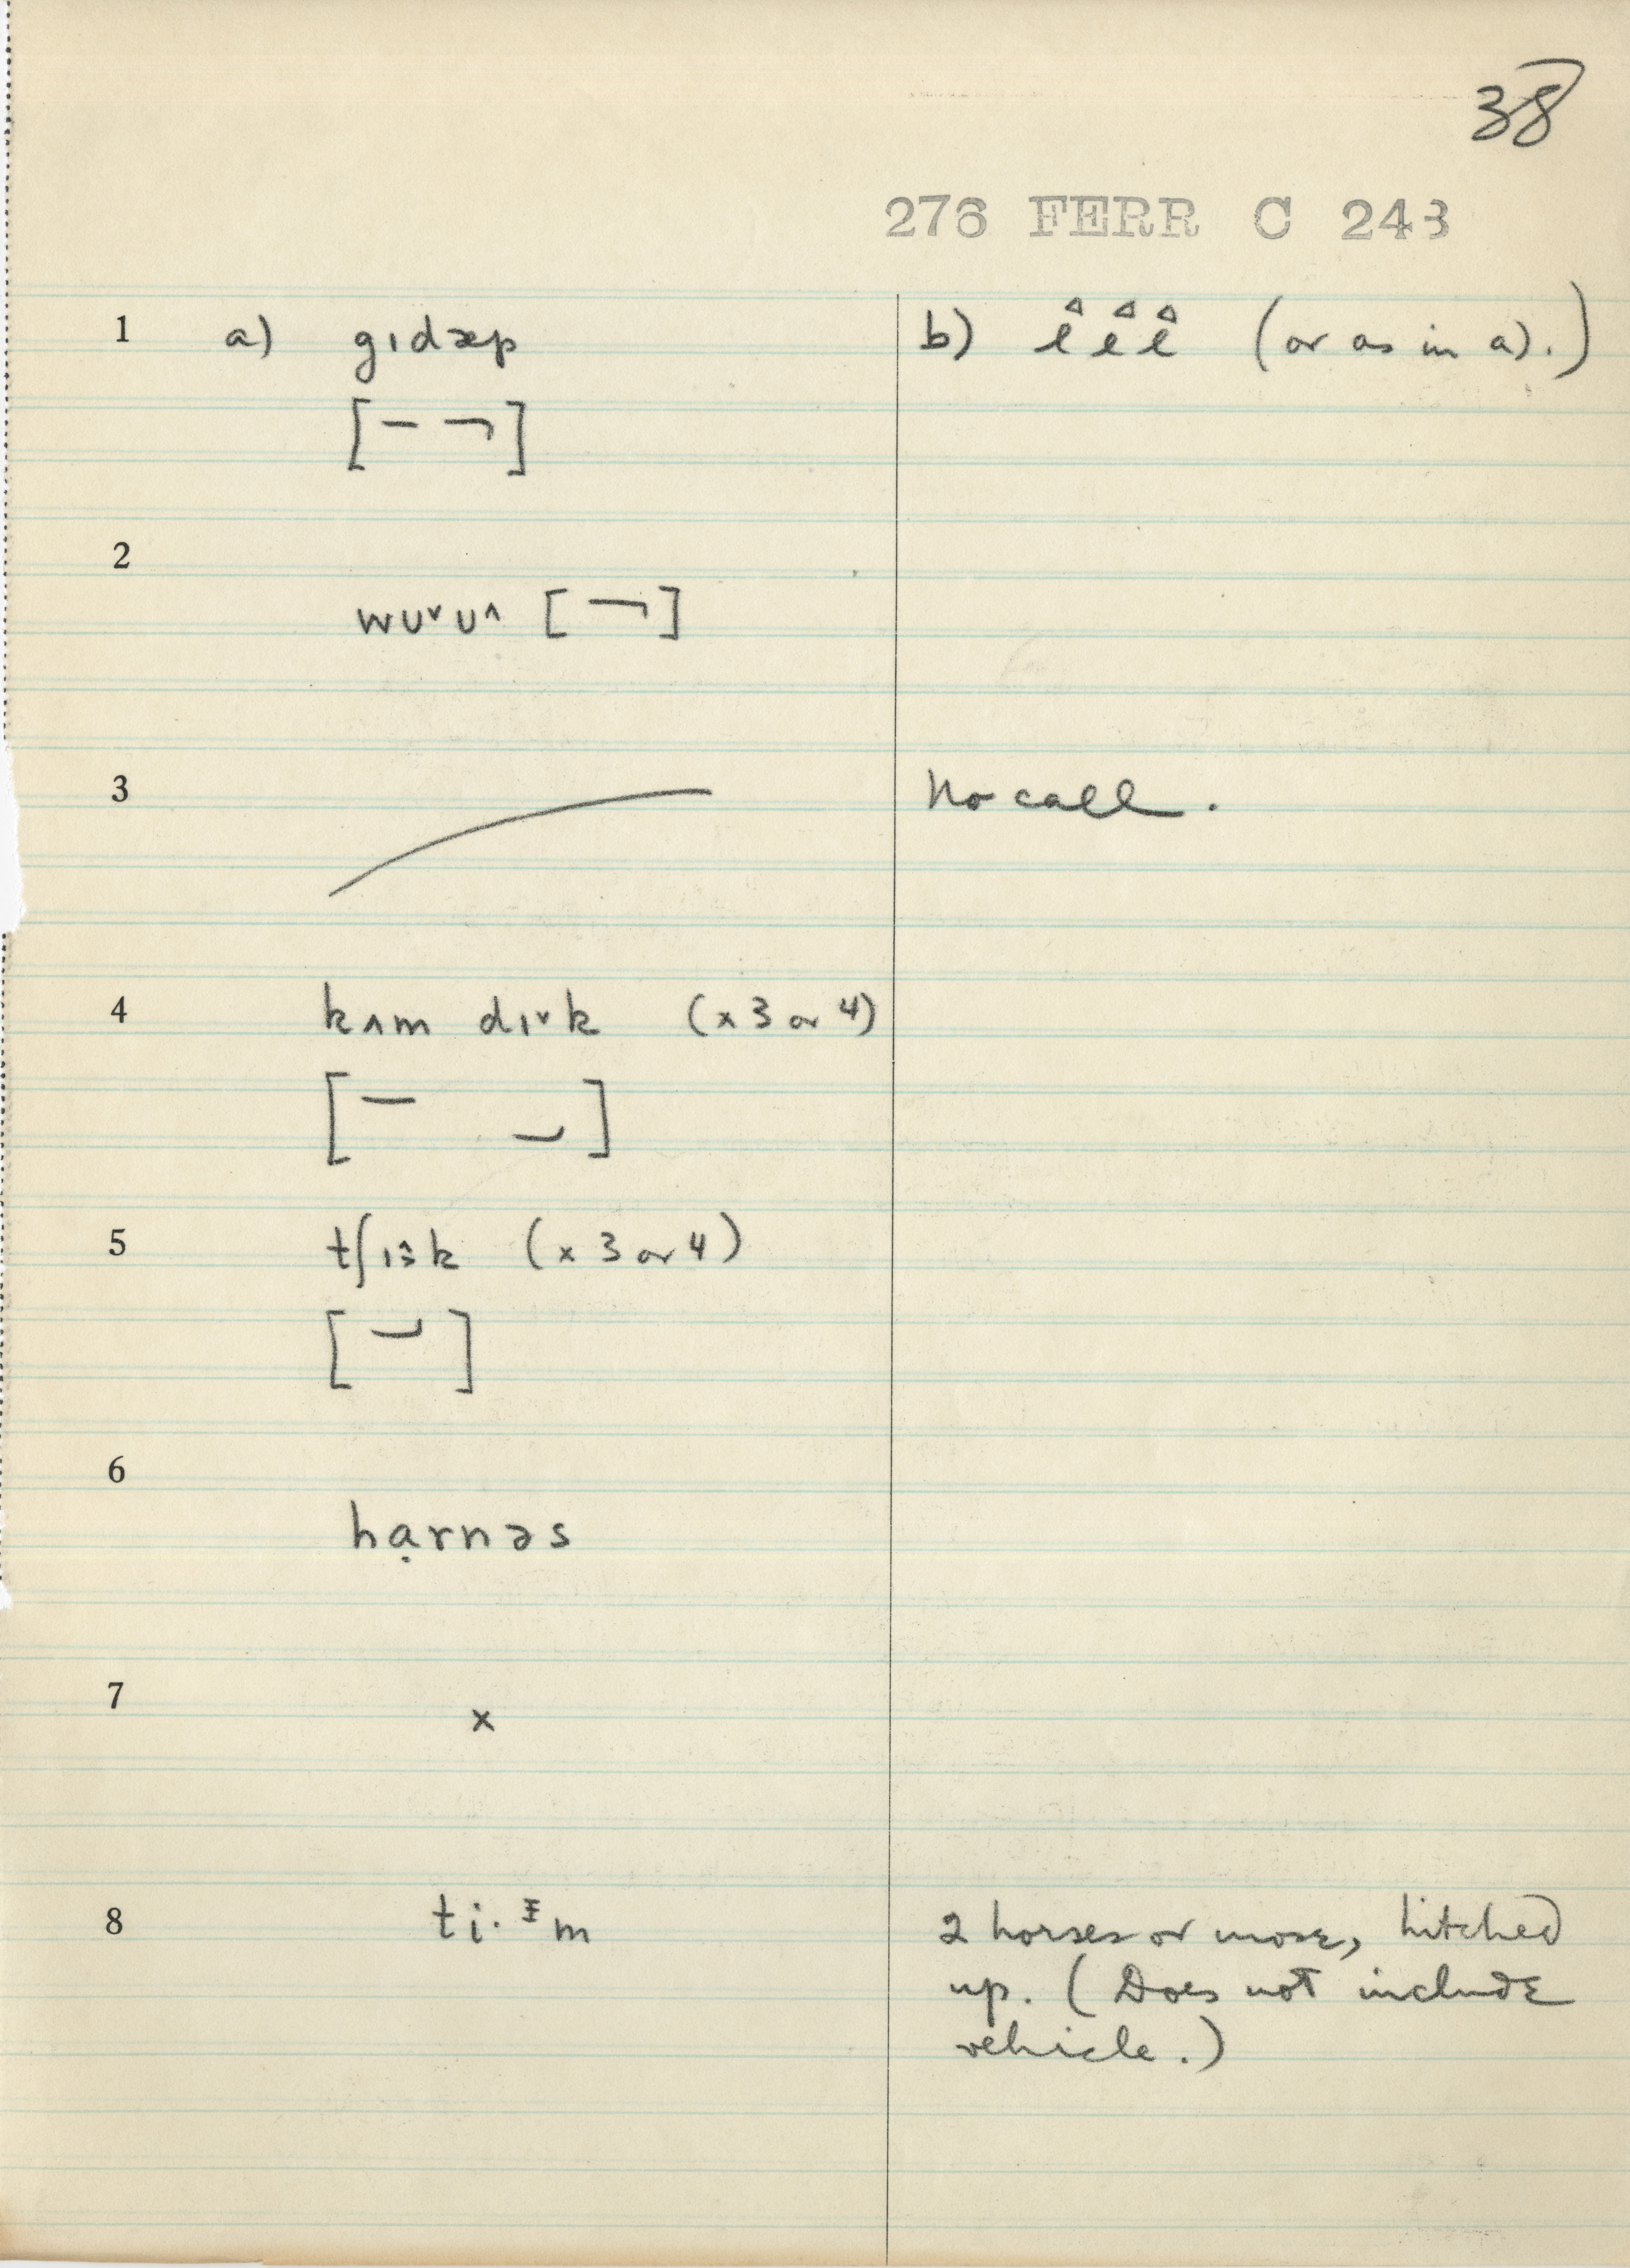 38
276 FERR C 243
1 a) gɪdæp b) (or as in a).)
[– ¬]
2
wʊ˅ʊ˄ [¬]
3 No call.
4 kʌm dɪ˅k (x 3 or 4)
5 (x 3 or 4)
6
hạrnəs
7
x
8 2 horses or more, hitched
up. (Does not include
vehicle.)